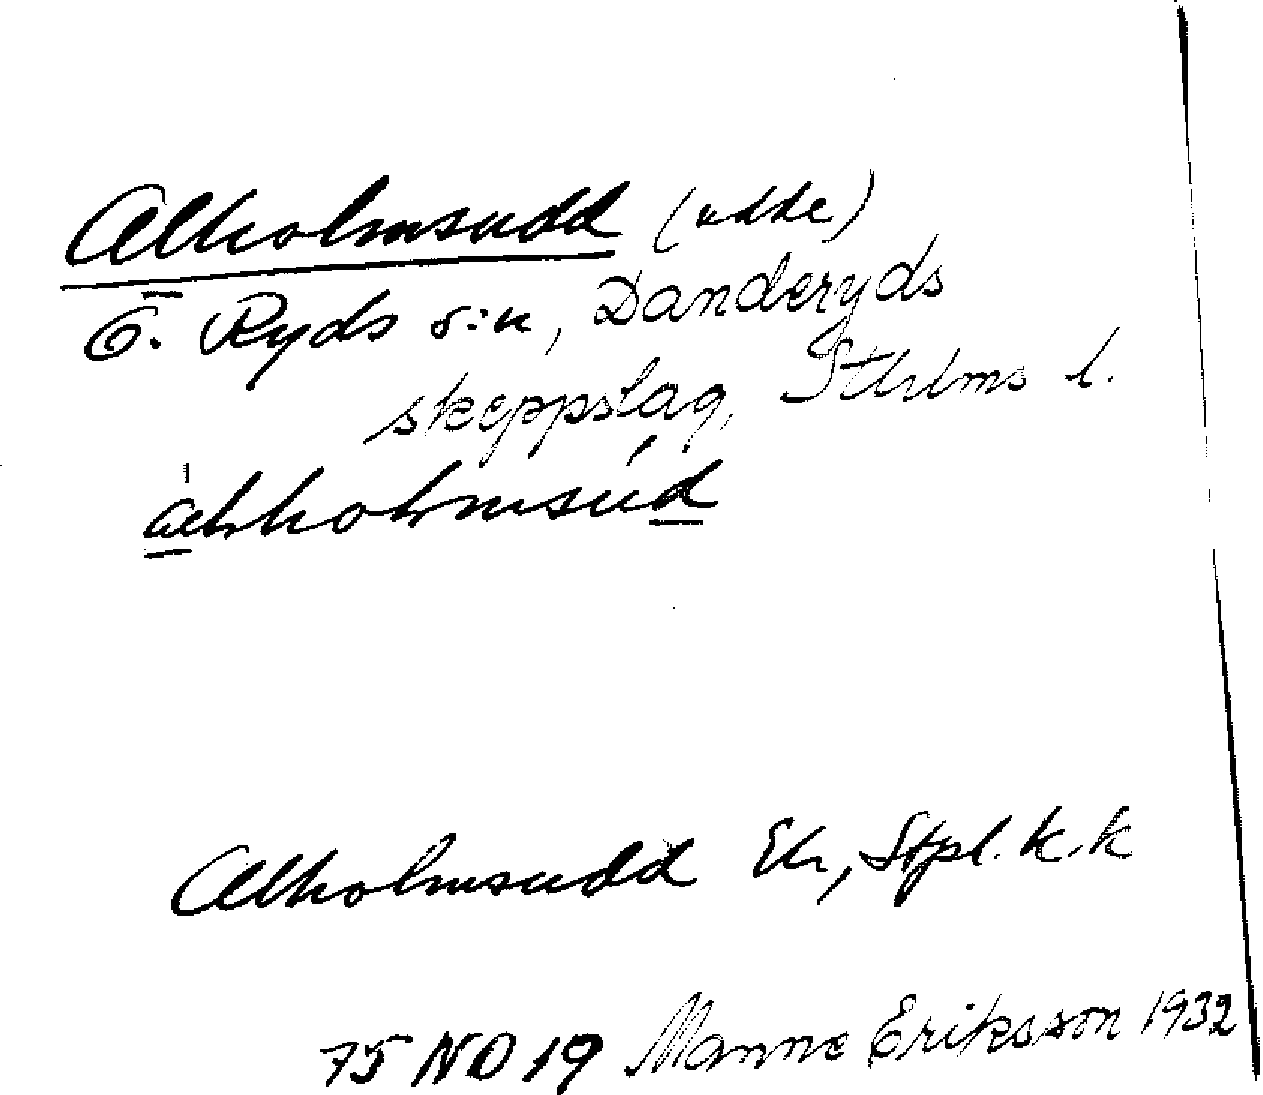 Alholmsudd (udde)
Ö. Ryds s:n, Danderyds
skeppslag, Sthlms l.
Alholmsudd Ek, Stpl. k.k
75 NO 19 Manne Eriksson 1932